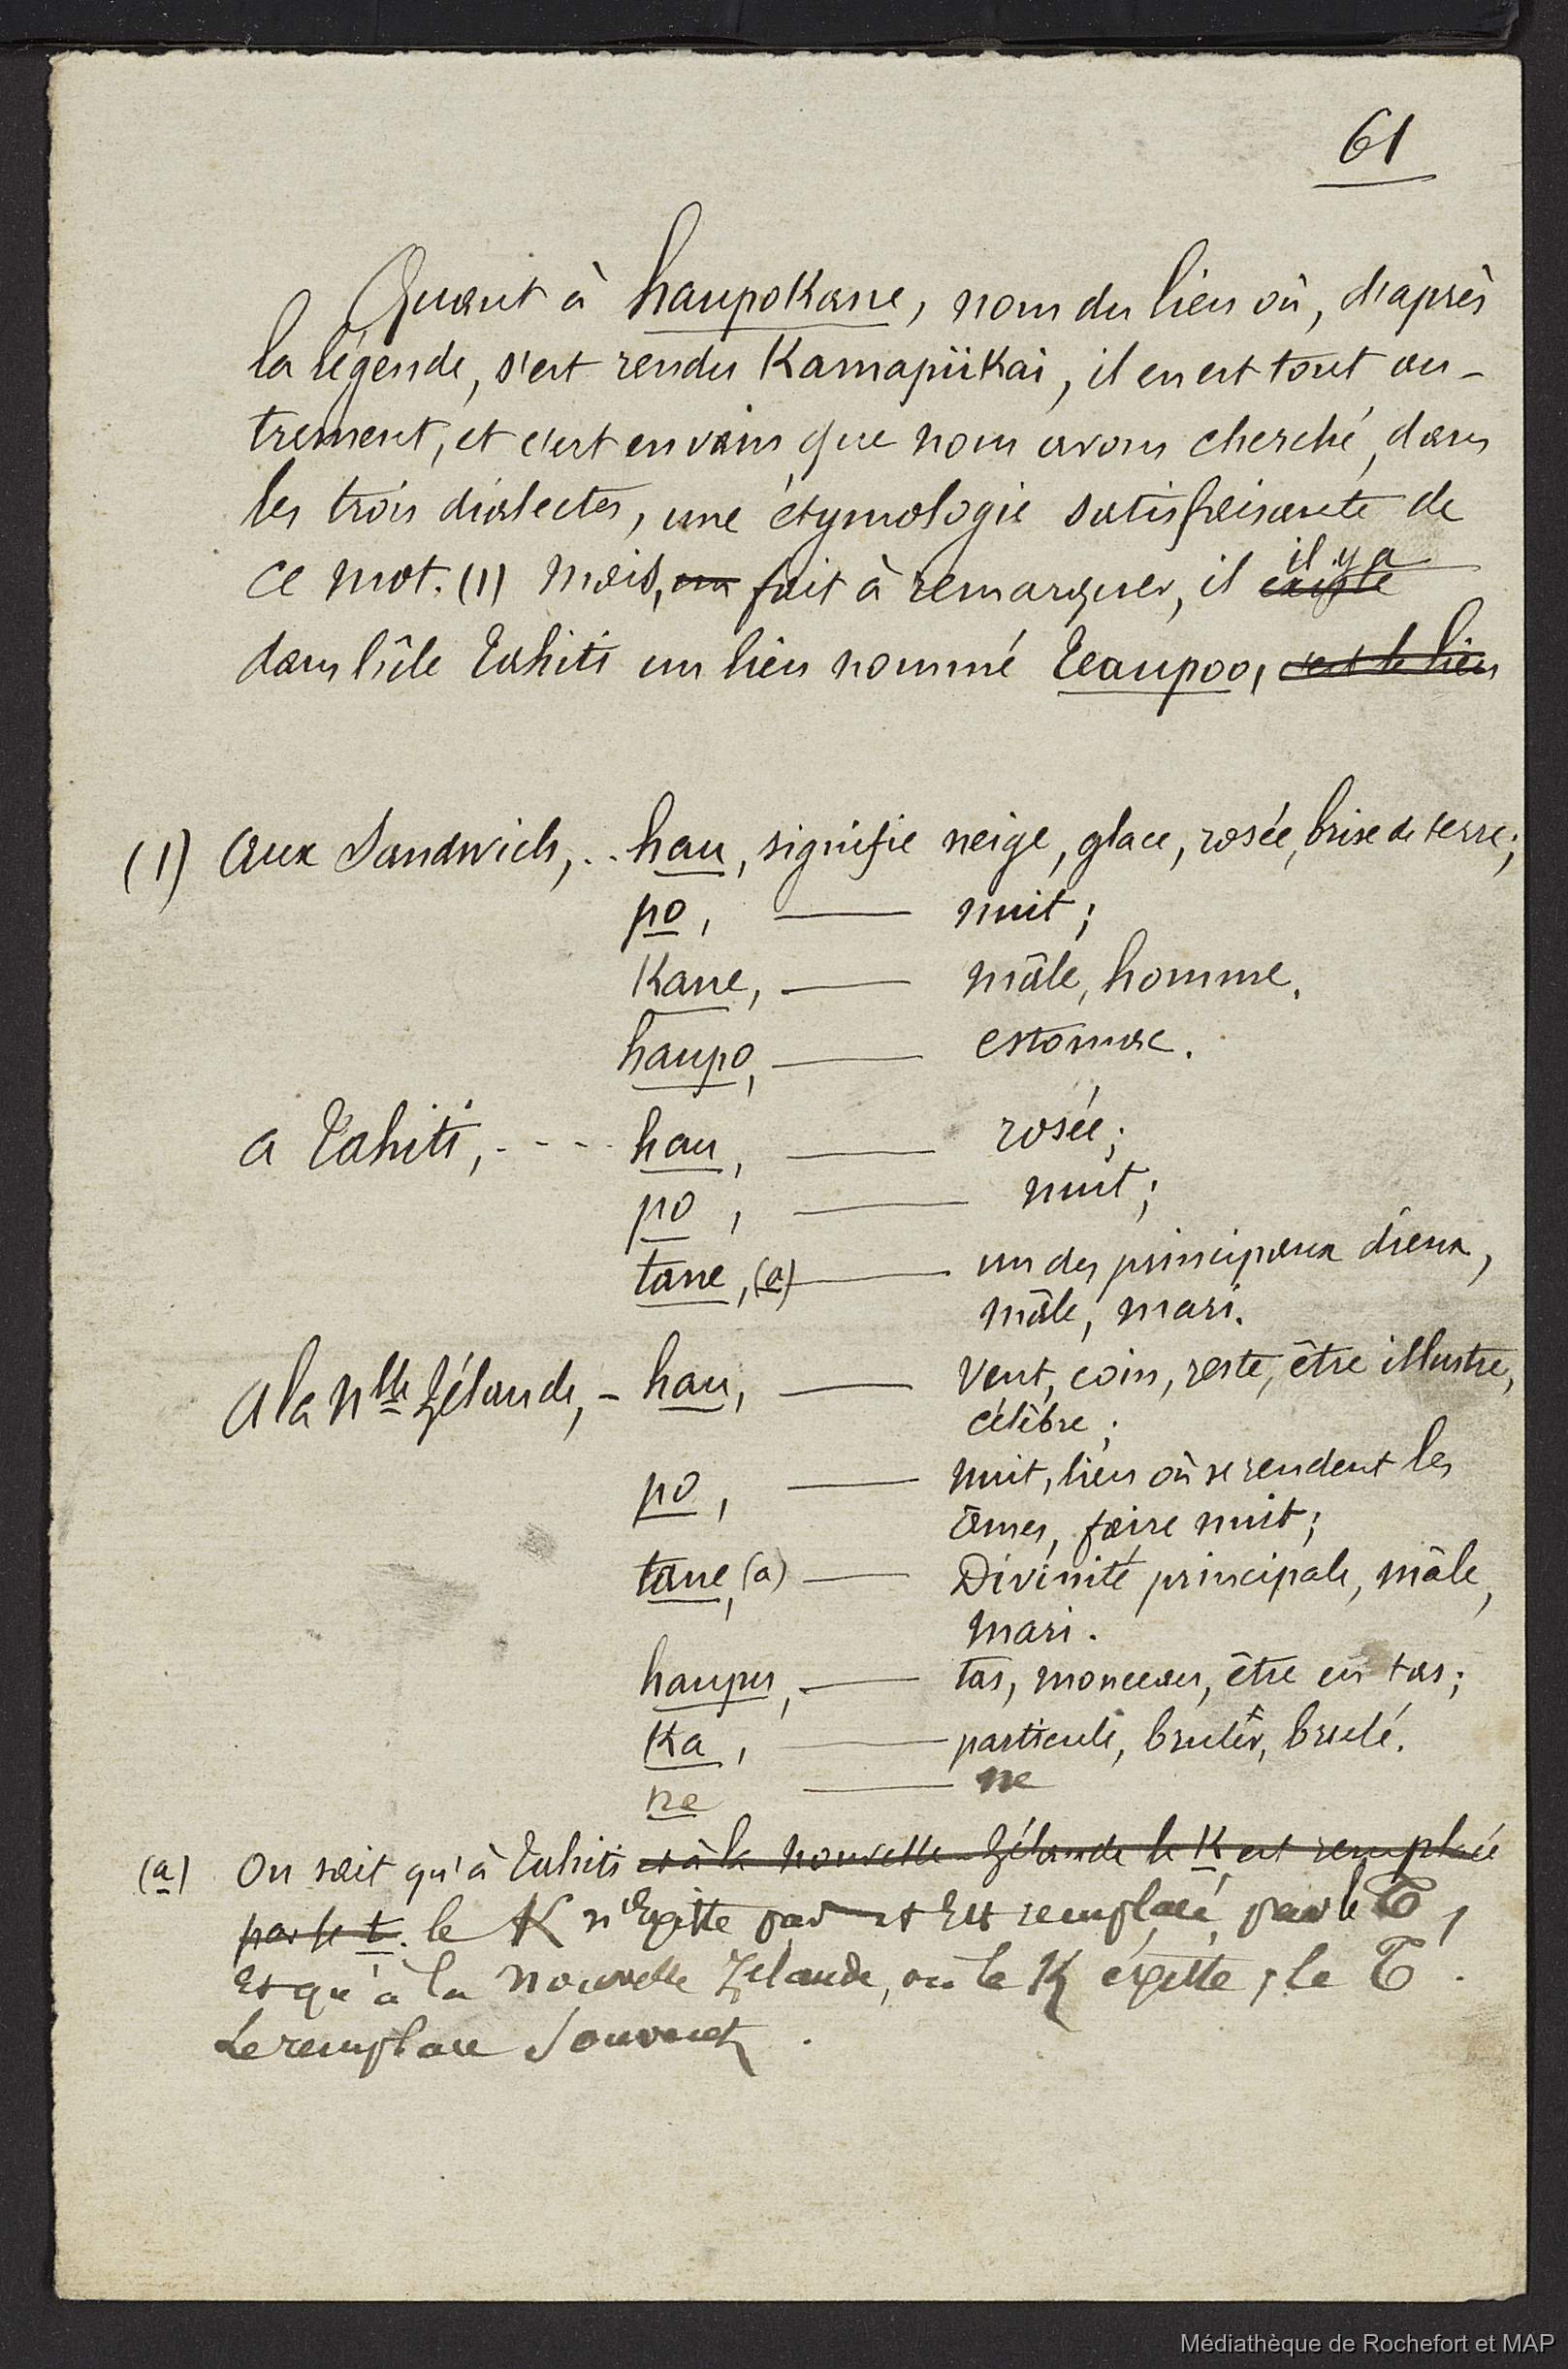 61
Quant à haupokane, nom du lieu où, d'après
la légende, s'est rendu Kamapiikai, il en est tout au-
trement, et c'est en vain que nous avons cherché, dans
les trois dialectes, une étymologie satisfaisante de
il y a
ce mot. (1) Mais, fait à remarquer, il existe
dans l'île Tahiti un lieu nommé Teaupoo, c'est le lieu
(1) Aux Sandwich, .. hau, signifie neige, glace, rosée, brise de terre;
po, — nuit;
Kane, — mâle, homme.
haupo, — estomac.
a Tahiti, - - - - hau, — rosée;
po, — nuit;
tane, (a) — un des principaux dieux,
mâle, mari.
A la Nlle Zélande, - hau, — Vent, coin, reste, être illustre,
célèbre;
po, — nuit, lieu où se rendent les
âmes, faire nuit;
tane, (a) — Divinité principale, mâle,
mari.
haupu, — tas, monceau, être en tas;
Ka, — particule, bruler, brulé.
ne — ne
(a) On sait qu'à Tahiti et à la Nouvelle-Zélande le K est remplacé
par le t. le K n'Existe pas et Est remplacé par le T,
Et qu'à la Nouvelle Zelande, ou le K existe, le T
Le remplace Souvent.
Médiathèque de Rochefort et MAP